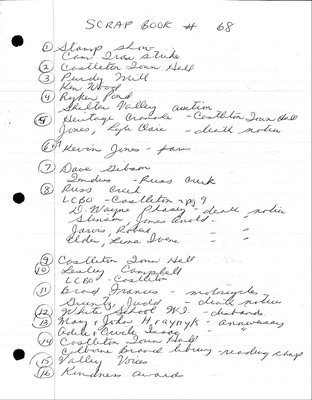 SCRAP BOOK # 68
① Stamp show
Cam Tran strike
② Castleton Town Hall
③ Purdy Mill
Ken Wood
④ Ryken Pond
Shelter Valley auction
⑤ Heritage Cramahe - Castleton Town Hall
Jones, Lyle Clare - death notice
⑥ Kevin Jones -
⑦ Dave Gibson
Tenders - Russ Creek
⑧ Russ Creek
LCBO - Castleton pg 9
D. Wayne - death notice
Stinson, James Arnold - "
Jarvis, Robert " "
Elder, Lena Irene " "
⑨ Castleton Town Hall
⑩ Lesley Campbell
LCBO - Castleton
⑪ Brad Francis - motorcycles
Judd - death notice
⑫ White School W.I. - disbands
⑬ Mary & John Hraynyk - anniversary
Adele & Orville Isaac
⑭ Castleton Town Hall
Colborne Branch library - reading
⑮ Valley Voices
⑯ Kindness awards